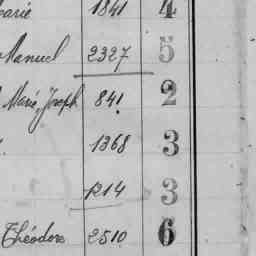 arie 1841 4
Manuel 2327 5
Marie, Joseph 841 2
1368 3
1214 3
Théodore 2510 6